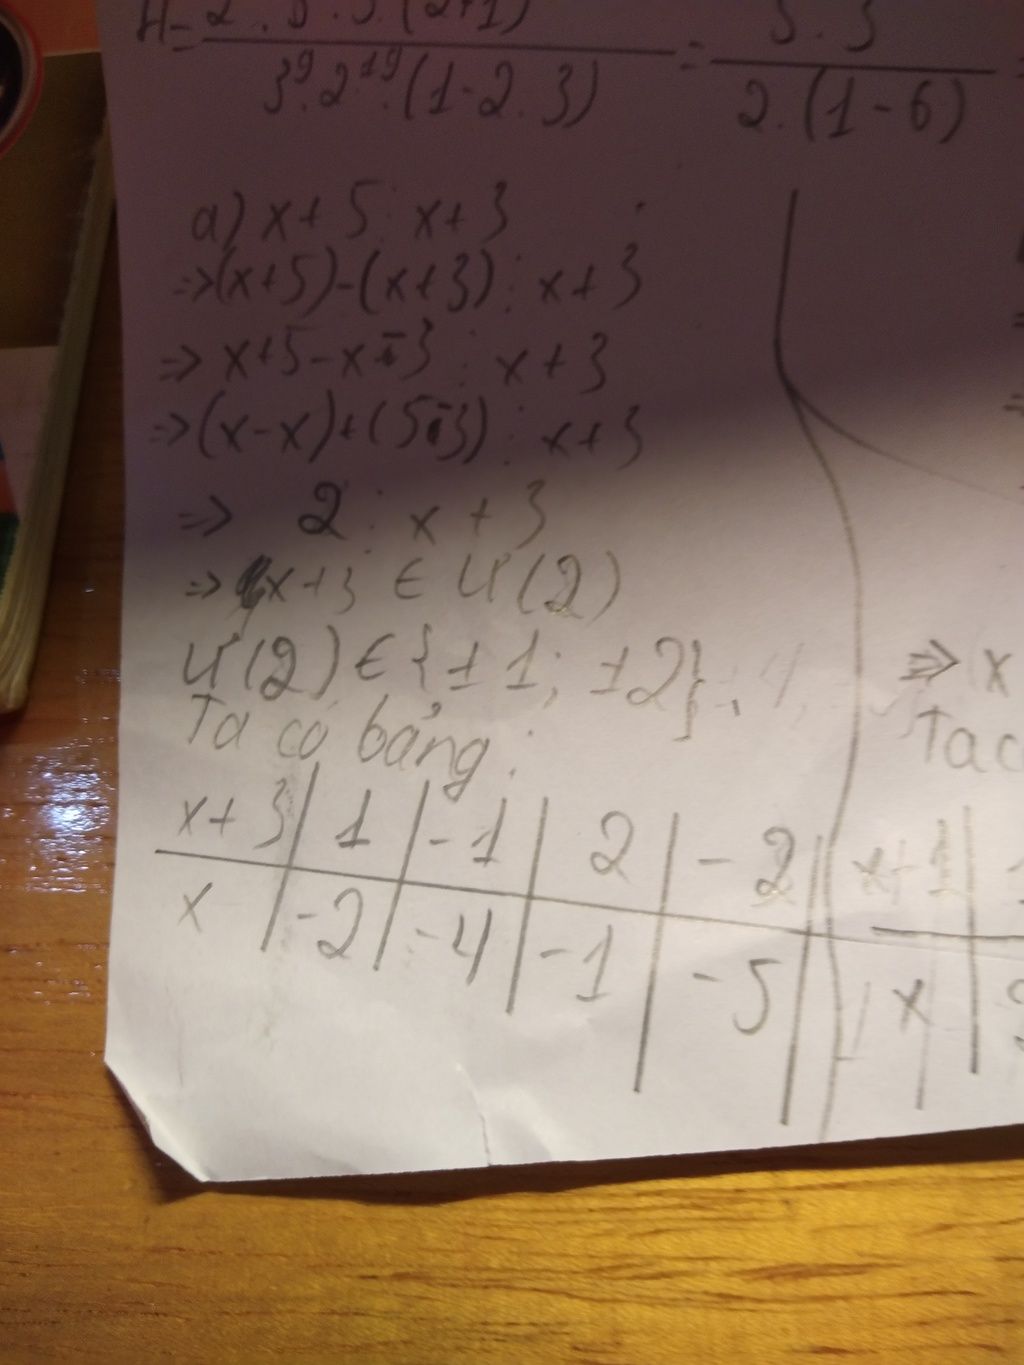 3⁹.2¹⁹.(1-2.3) = 2.(1-6)
a) x+5 ⋮ x+3
=> (x+5)-(x+3) ⋮ x+3
=> x+5-x-3 ⋮ x+3
=> (x-x)+(5-3) ⋮ x+3
=> 2 ⋮ x+3
=> x+3 ∈ Ư(2)
Ư(2) ∈ {±1; ±2}
Ta có bảng:
x+3 | 1 | -1 | 2 | -2
x | -2 | -4 | -1 | -5
=> x
Ta c
x+1
x